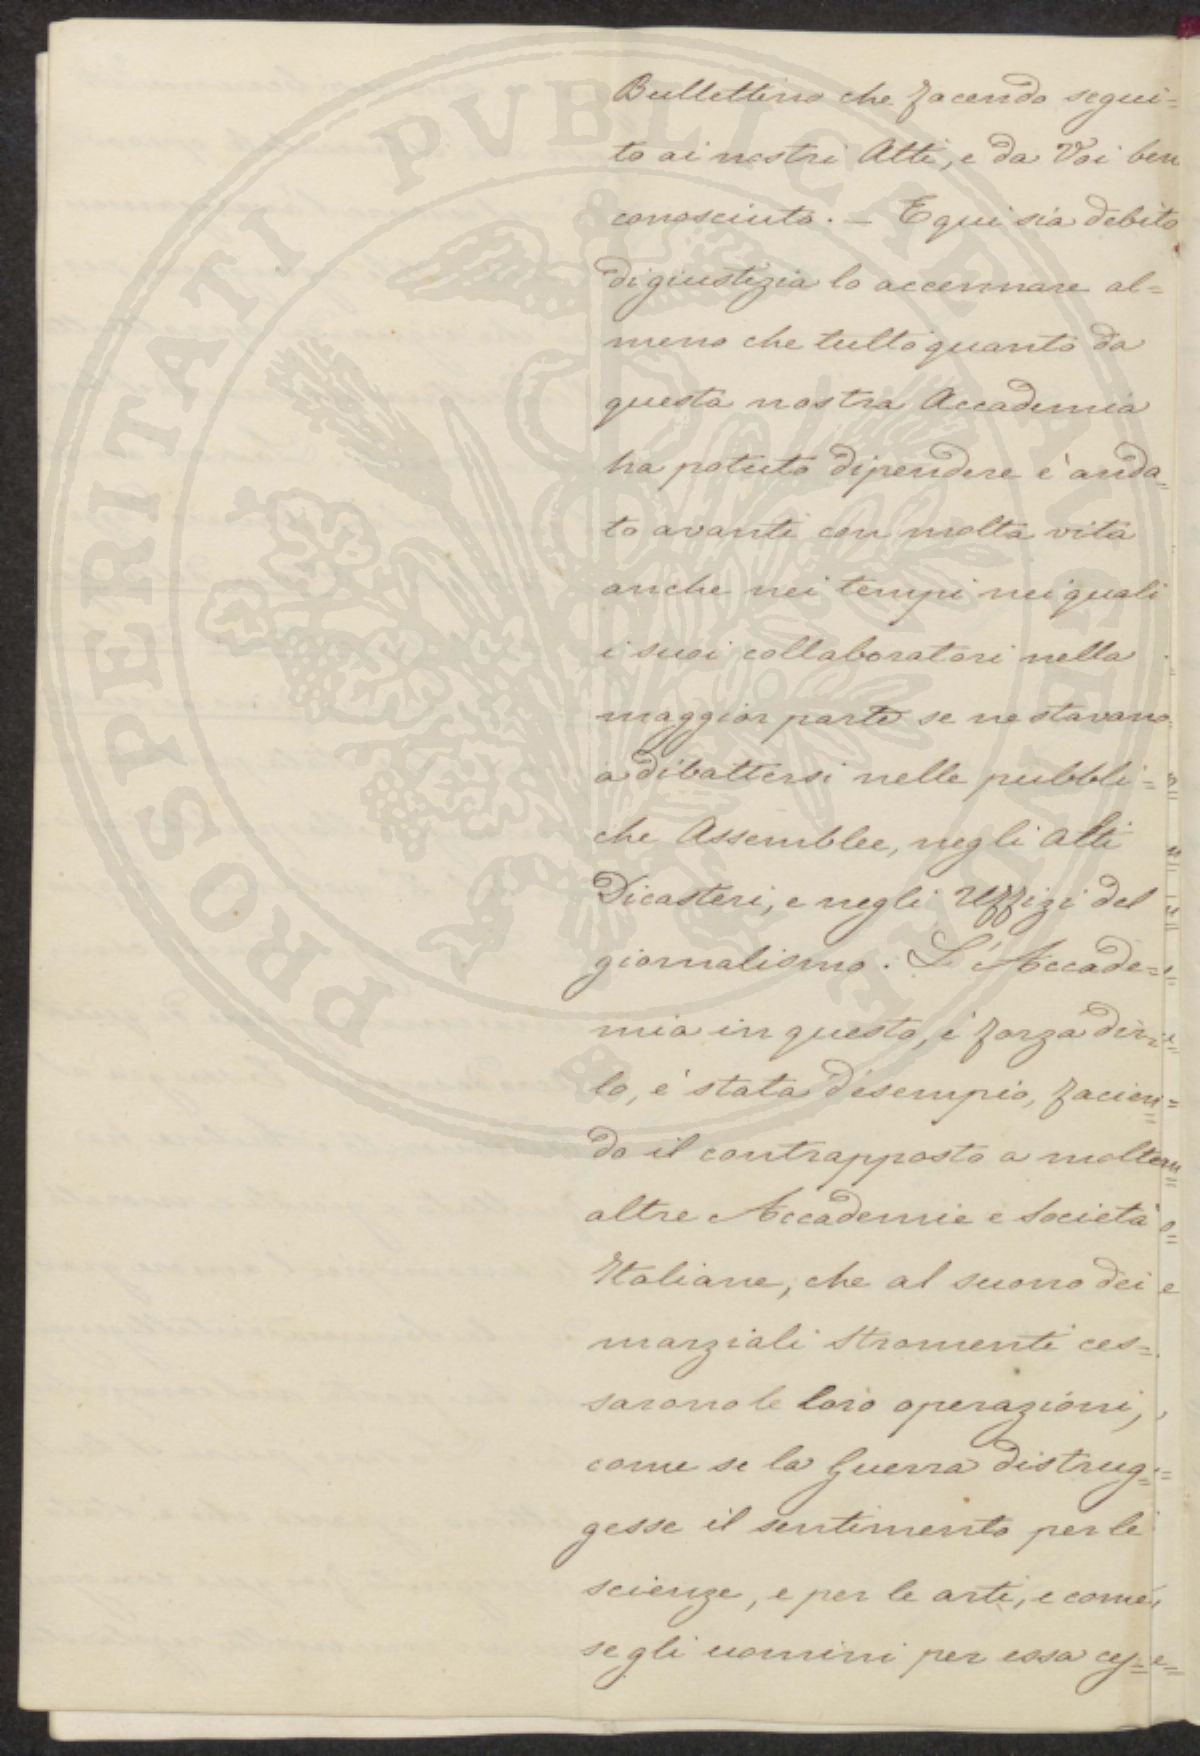 Bullettino che facendo segui=
to ai nostri Atti, e da Voi ben
conosciuto. — E qui sia debito
di giustizia lo accennare al=
meno che tutto quanto da
questa nostra Accademia
ha potuto dipendere è anda=
to avanti con molta vita
anche nei tempi nei quali
i suoi collaboratori nella
maggior parte se ne stavano
a dibattersi nelle pubbli=
che Assemblee, negli alti
Dicasteri, e negli Uffizi del
giornalismo. L'Accade=
mia in questo, è forza dir=
lo, è stata d'esempio, facien=
do il contrapposto a molte
altre Accademie e Società
Italiane, che al suono dei
marziali stromenti ces=
sarono le loro operazioni,
come se la Guerra distrug=
gesse il sentimento per le
scienze, e per le arti, e come
se gli uomini per essa
PROSPERITATI PVBLICAE AVGENDAE